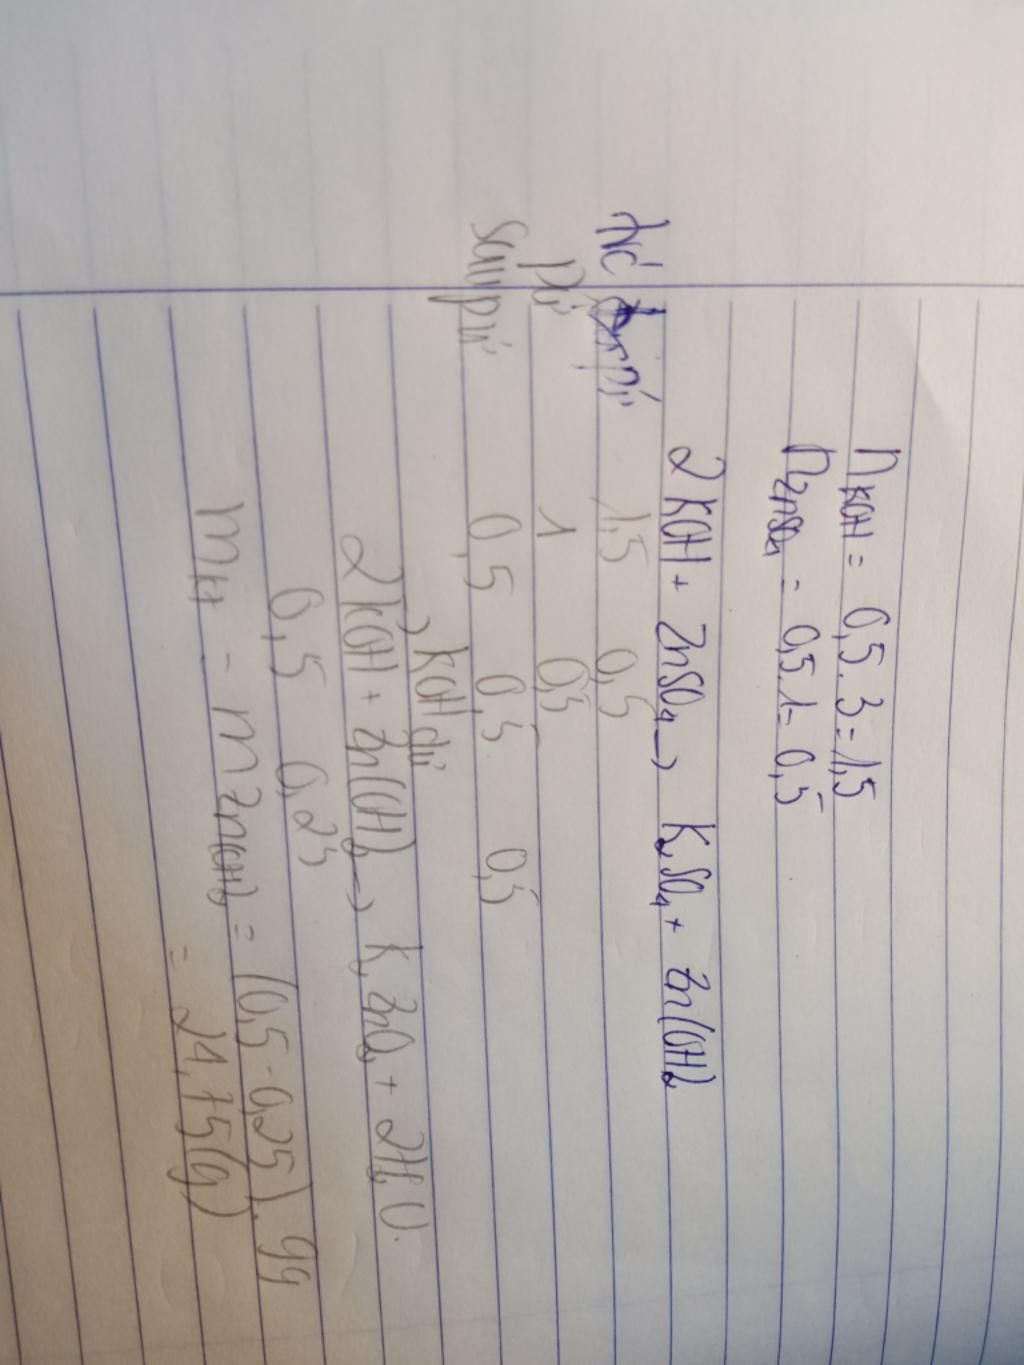 nKOH = 0,5.3=1,5
nZnSO4 = 0,5.1=0,5
2KOH + ZnSO4 → K2SO4 + Zn(OH)2
trc pứ 1,5 0,5
pứ 1 0,5
sau pứ 0,5 0,5 0,5
→ KOH dư
2KOH + Zn(OH)2 → K2ZnO2 + 2H2O.
0,5 0,25
mkt = mZn(OH)2 = (0,5-0,25).99
= 24,75(g)